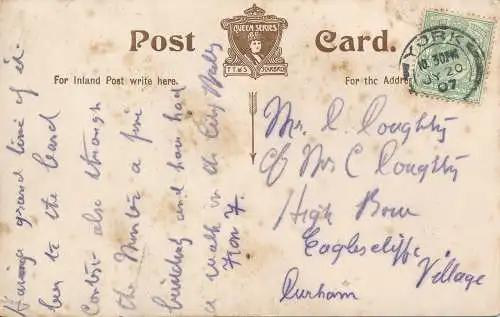 Post Card.
QUEEN SERIES
For Inland Post write here.
For the Address
YORK
10.30AM
JY 20
07
Having grand time of it
been to the band
Contest also through
the Minster a fine
building and have had
a walk in the City Walls
from F.
Mr. C. Coughty
c/o Mrs C Coughty
High Row
Eaglescliffe
Village
Durham